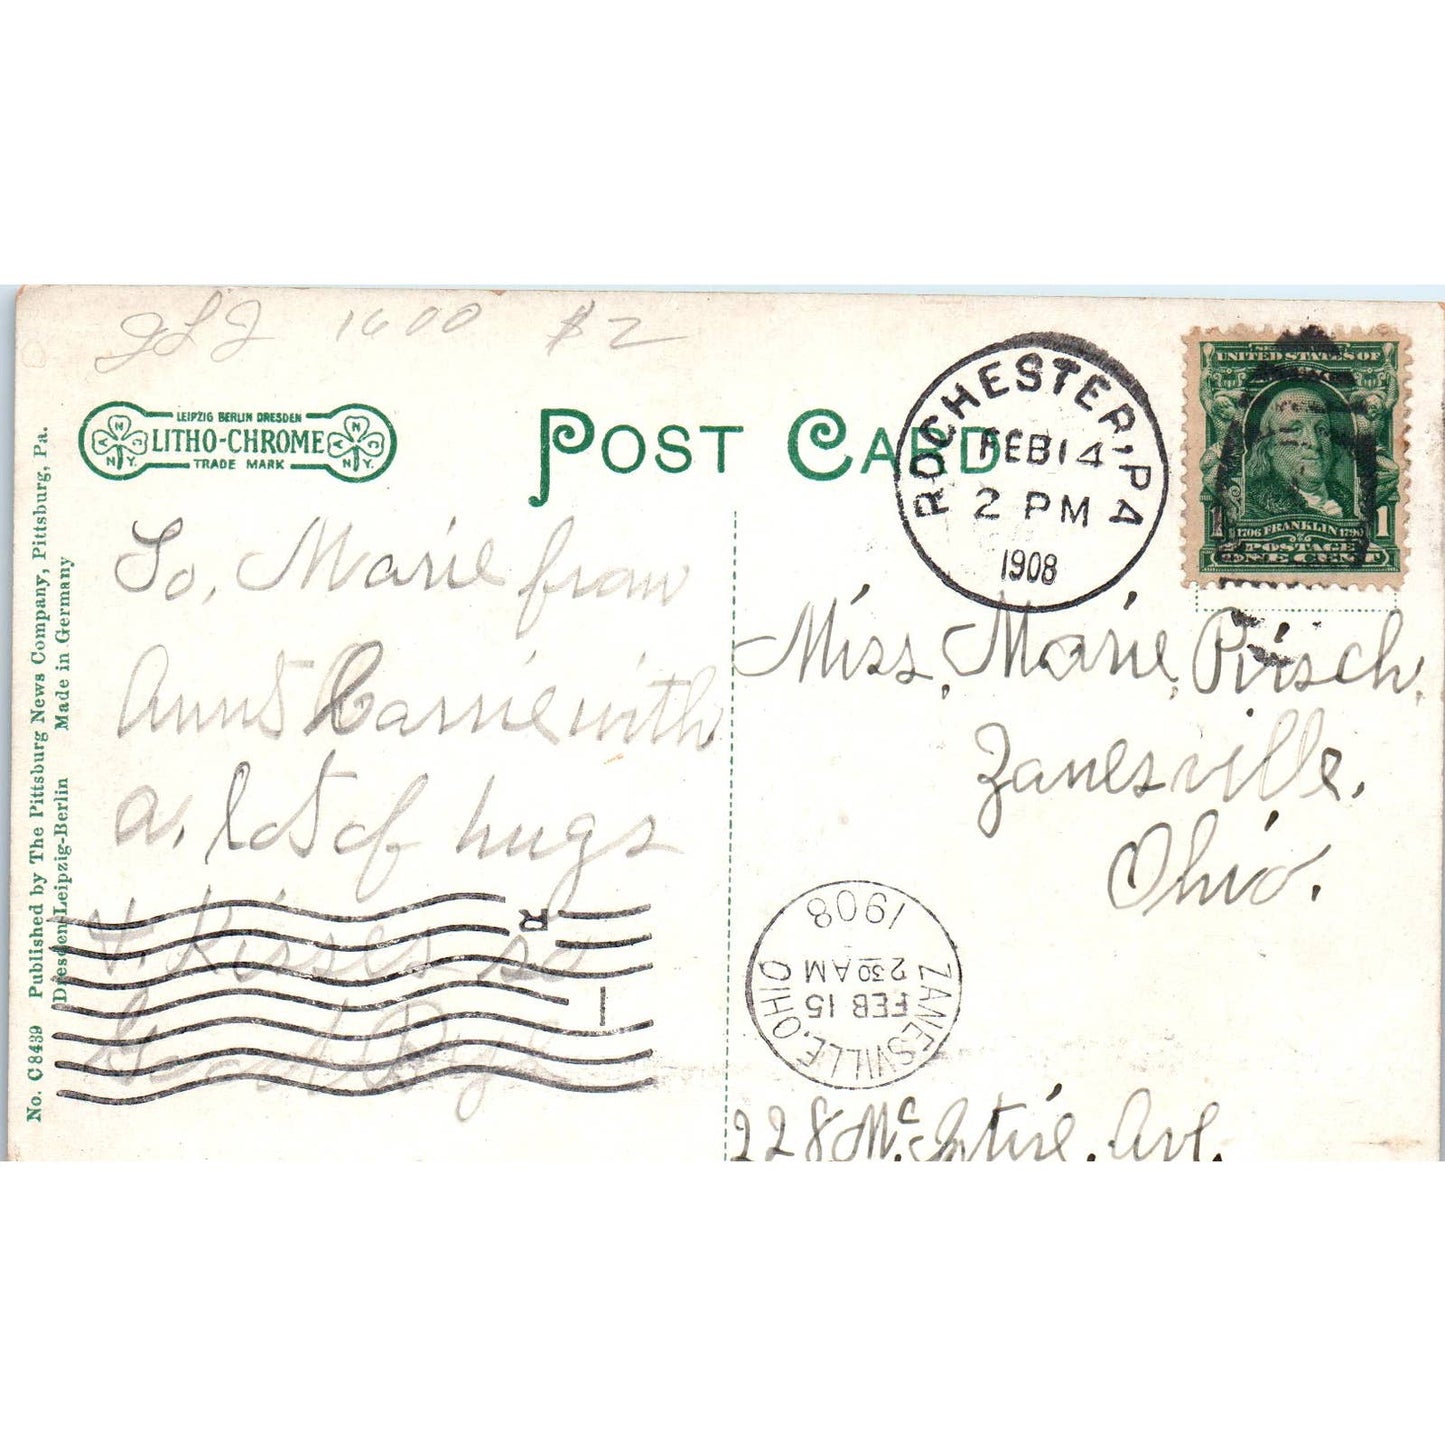 1600 $2
LEIPZIG BERLIN DRESDEN
LITHO-CHROME
TRADE MARK
A N C N.Y.
A N C N.Y.
POST CARD
ROCHESTER, PA
FEB 14
2 PM
1908
UNITED STATES OF
1706 FRANKLIN 1790
POSTAGE
ONE CENT
1
1
To, Marie from
Aunt Carrie with
a, lot of hugs
& Kisses so
Good Bye
R
I
Miss, Marie, Pirsch,
Zanesville,
Ohio.
228 Mc.Intire, Ave,
ZANESVILLE, OHIO
FEB 15
230 AM
1908
No. C 8439 Published by The Pittsburg News Company, Pittsburg, Pa.
Dresden-Leipzig-Berlin Made in Germany